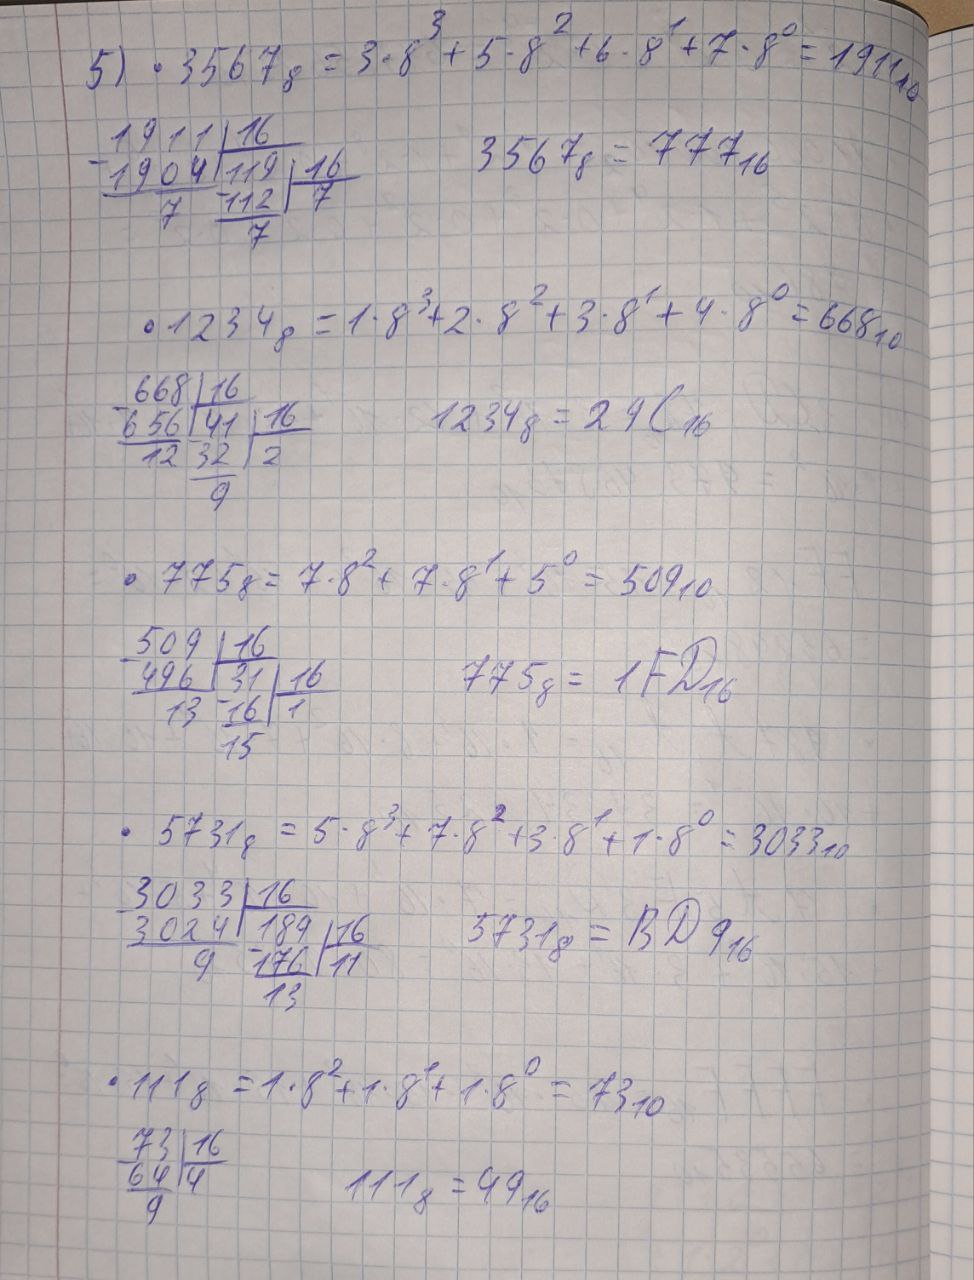 5) • 3567₈ = 3·8³ + 5·8² + 6·8¹ + 7·8⁰ = 1911₁₀
1911 | 16
- 1904 | 119 | 16
7 - 112 | 7
7
3567₈ = 777₁₆
• 1234₈ = 1·8³ + 2·8² + 3·8¹ + 4·8⁰ = 668₁₀
668 | 16
- 656 | 41 | 16
12 32 | 2
9
1234₈ = 29C₁₆
• 775₈ = 7·8² + 7·8¹ + 5⁰ = 509₁₀
509 | 16
- 496 | 31 | 16
13 - 16 | 1
15
775₈ = 1FD₁₆
• 5731₈ = 5·8³ + 7·8² + 3·8¹ + 1·8⁰ = 3033₁₀
3033 | 16
- 3024 | 189 | 16
9 - 176 | 11
13
5731₈ = BD9₁₆
• 111₈ = 1·8² + 1·8¹ + 1·8⁰ = 73₁₀
73 | 16
- 64 | 4
9
111₈ = 49₁₆